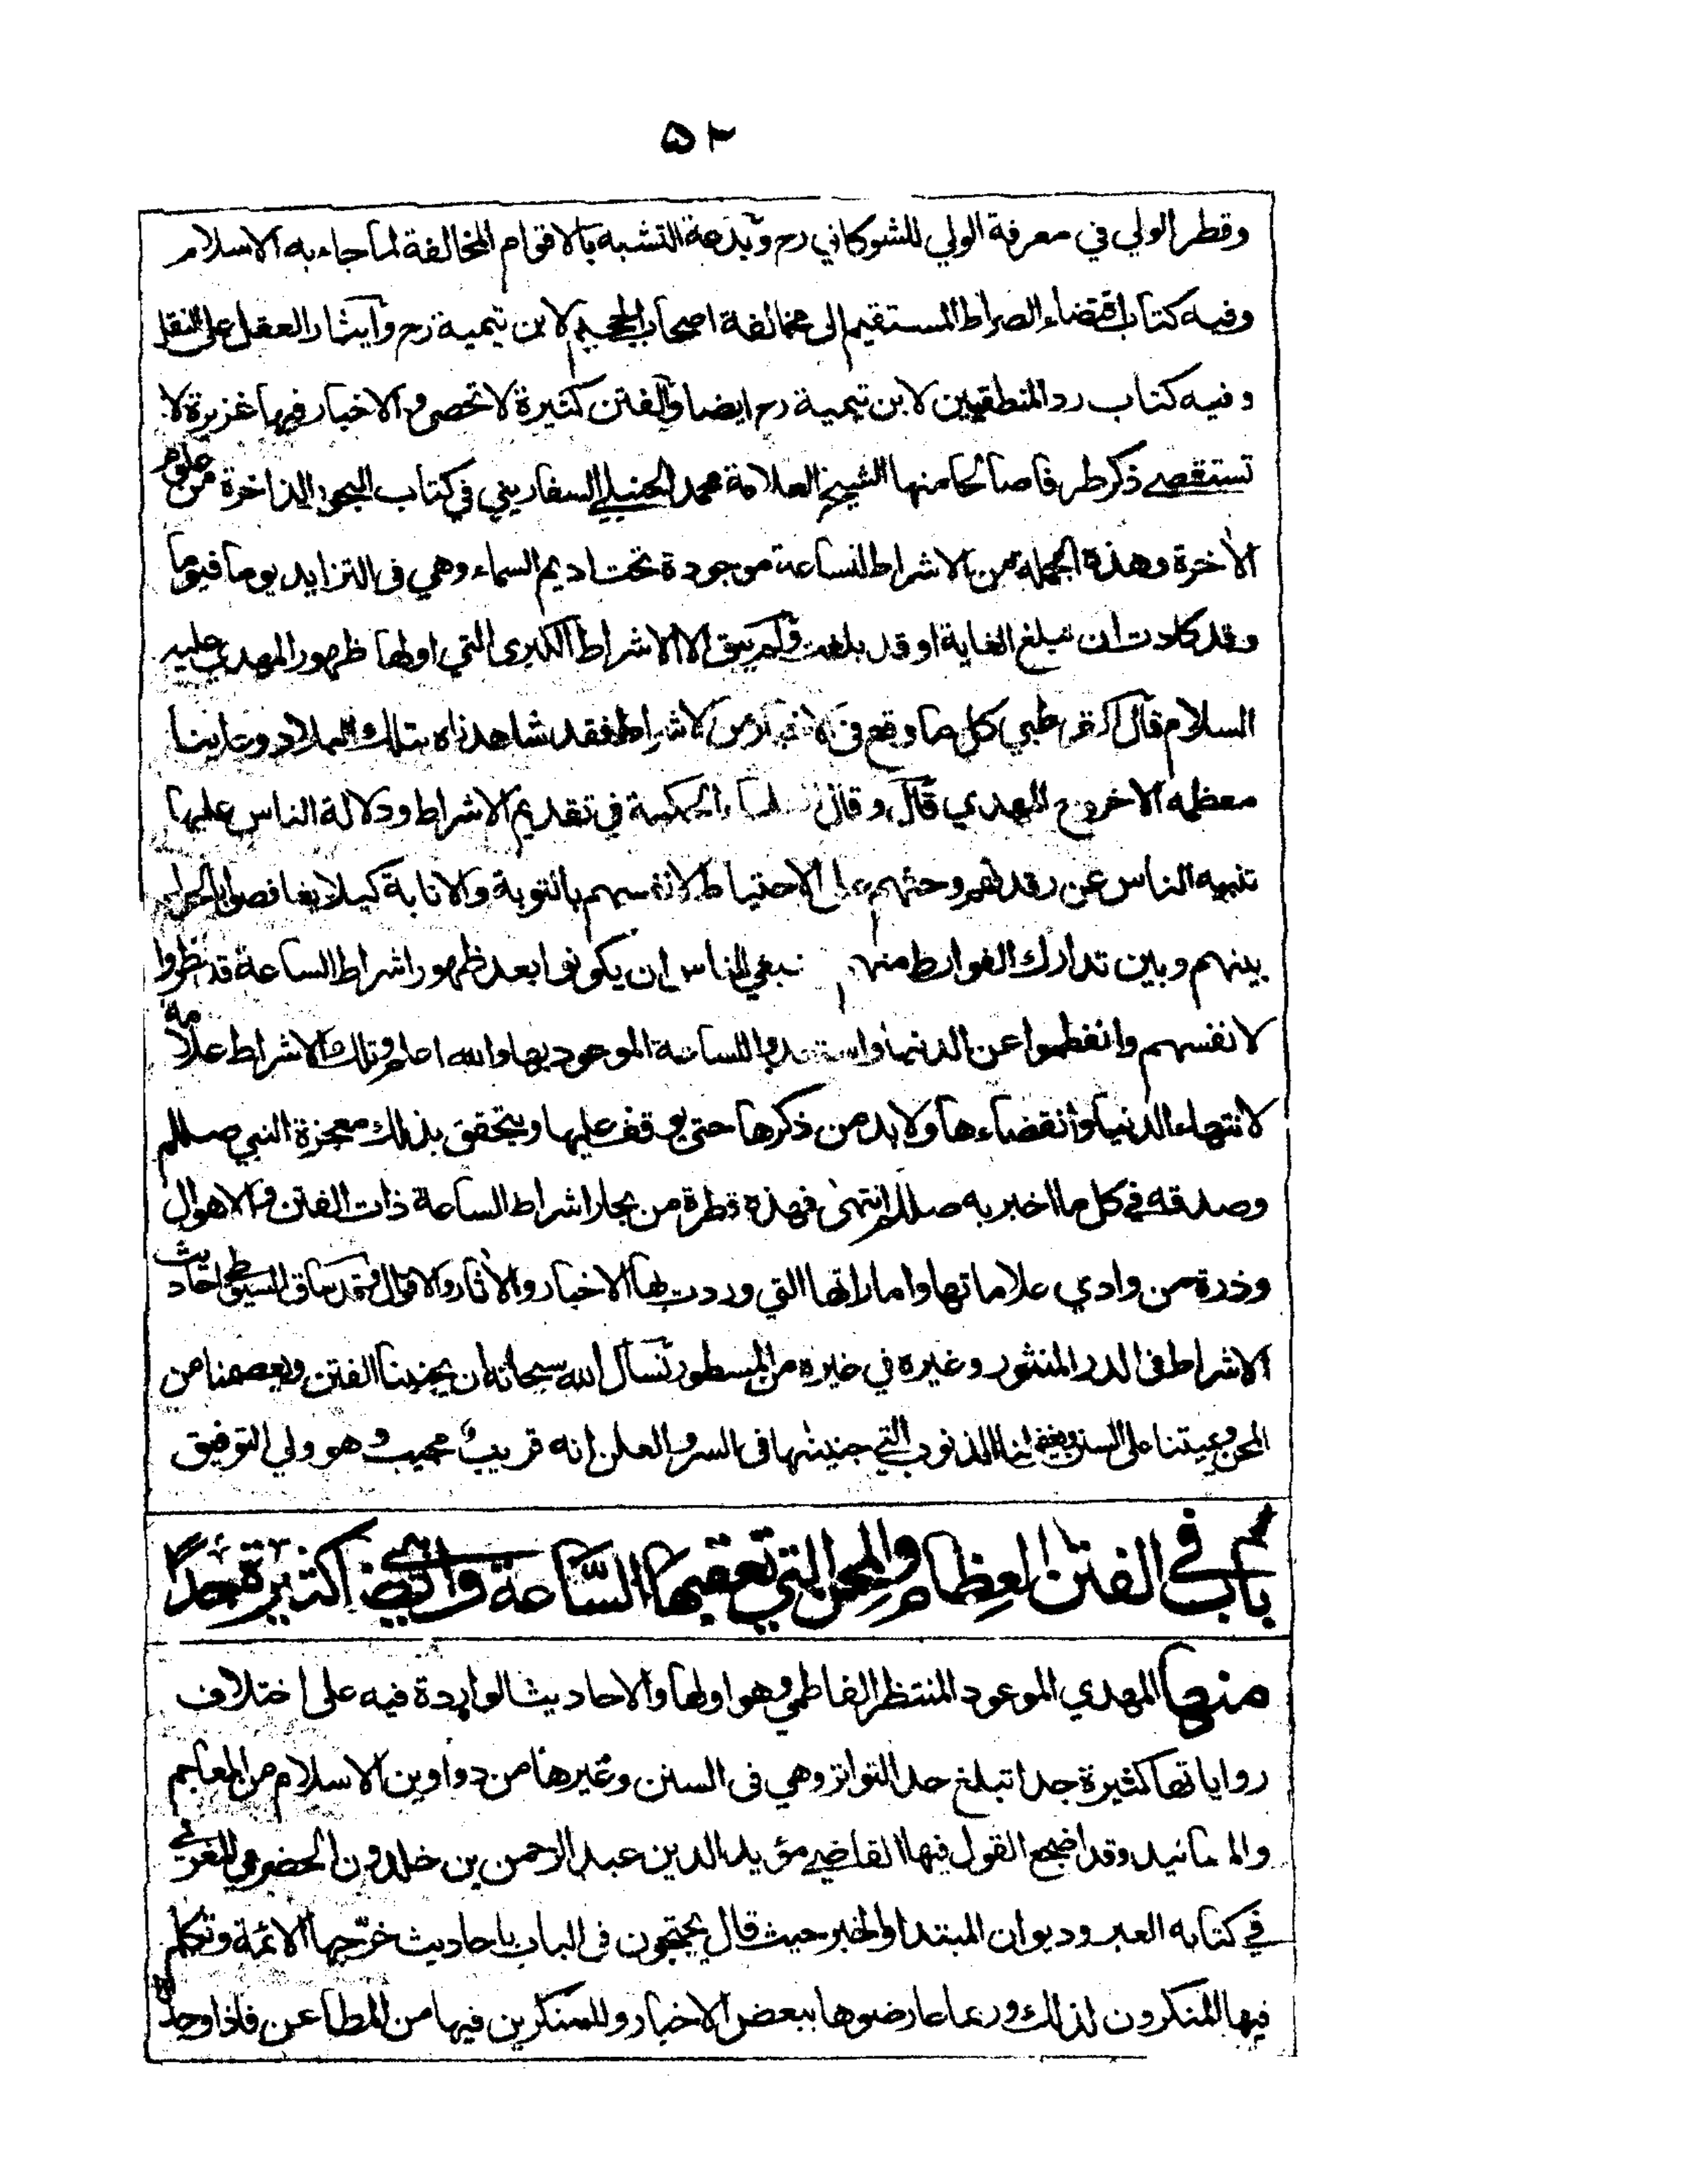 ٥٢
وقطر الولي في معرفة الولي للشوكاني رح وبدعة التشبه بالاقوام المخالفة لما جاء به الاسلام
وفيه كتاب اقتضاء الصراط المستقيم الى مخالفة اصحاب الجحيم لابن تيمية رح وايثار العقل على النقل
وفيه كتاب رد المنطقيين لابن تيمية رح ايضا والفتن كثيرة لا تحصى والاخبار فيها غزيرة لا
تستقصے ذكر طرفا صالحا منها الشيخ العلامة محمد الحنبلے السفاريني في كتاب البحور الزاخرة من علوم
الآخرة وهذه الجملة من الاشراط للساعة موجودة تحت اديم السماء وهي فى التزايد يوما فيوما
وقد كادت ان تبلغ الغاية او قد بلغت ولم يبق الا الاشراط الكبرى التي اولها ظهور المهدي عليه
السلام قال القرطبي كل ما وقع في من الاشراط فقد شاهدناه بتلك البلاد وعاينا
معظمه الا خروج المهدي قال وقال العلماء الحكمة في تقديم الاشراط ودلالة الناس عليها
تنبيه الناس عن رقدتهم وحثهم على الاحتياط لانفسهم بالتوبة والانابة كيلا يغافصوا بالحول
بينهم وبين تدارك الفوارط منهم ينبغي للناس ان يكونوا بعد ظهور اشراط الساعة قد نظروا
لانفسهم وانفطموا عن الدنيا واستعدوا للساعة الموعود بها والله اعلم وتلك الاشراط علامة
لانتهاء الدنيا وانقضاءها ولا بد من ذكرها حتى يوقف عليها ويتحقق بذلك معجزة النبي صللم
وصدقه في كل ما اخبر به صللم انتهى فهذه قطرة من بحار اشراط الساعة ذات الفتن والاهوال
وذرة من وادي علاماتها واماراتها التي وردت بها الاخبار والآثار والاقوال وقد ساق السيوطي احاديث
الاشراط فى الدر المنثور وغيره في غيره من المسطور نسأل الله سبحانه ان يجنبنا الفتن ويعصمنا من
المحن ويميتنا على السنن ويغفر لنا الذنوب التي جنيناها فى السر والعلن انه قريب مجيب وهو ولي التوفيق
باب في الفتن العظام والمحن التي تعقبها الساعة وهي ايضا كثيرة جدا
منها المهدي الموعود المنتظر الفاطمي وهو اولها والاحاديث الواردة فيه على اختلاف
رواياتها كثيرة جدا تبلغ حد التواتر وهي فى السنن وغيرها من دواوين الاسلام من المعاجم
والمسانيد وقد اضجع القول فيها القاضے مؤيد الدين عبد الرحمن بن خلدون الحضرمي المغربي
في كتابه العبر وديوان المبتدا والخبر حيث قال يحتجون فى الباب باحاديث خرّجها الائمة وتكلم
فيها المنكرون لذلك وربما عارضوها ببعض الاخبار وللمنكرين فيها من المطاعن فاذا وجدنا